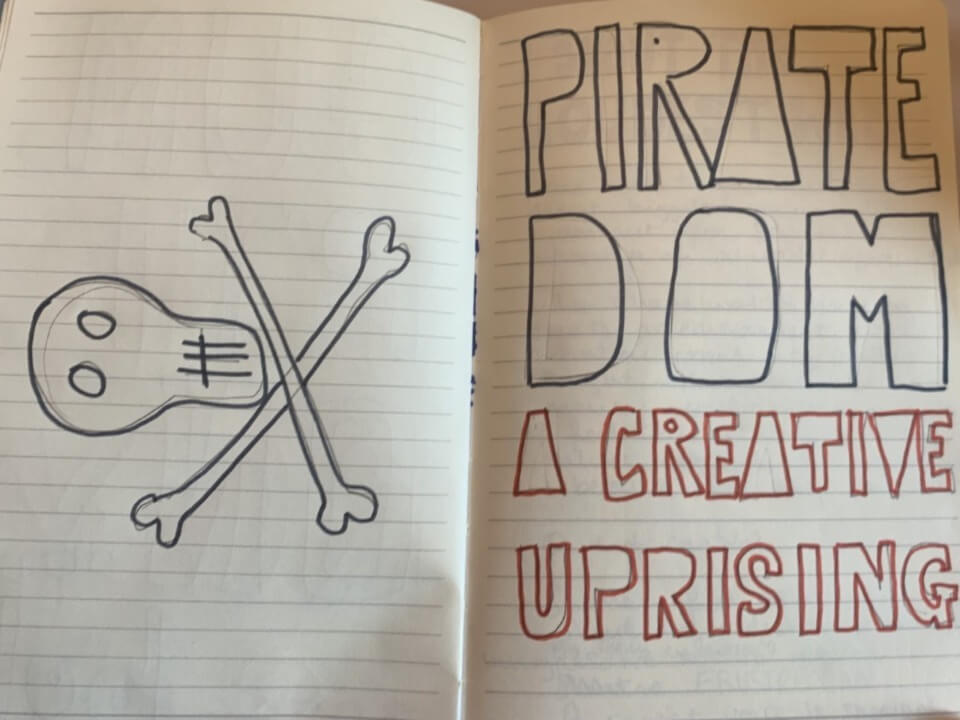 PIRATE
DOM
A CREATIVE
UPRISING